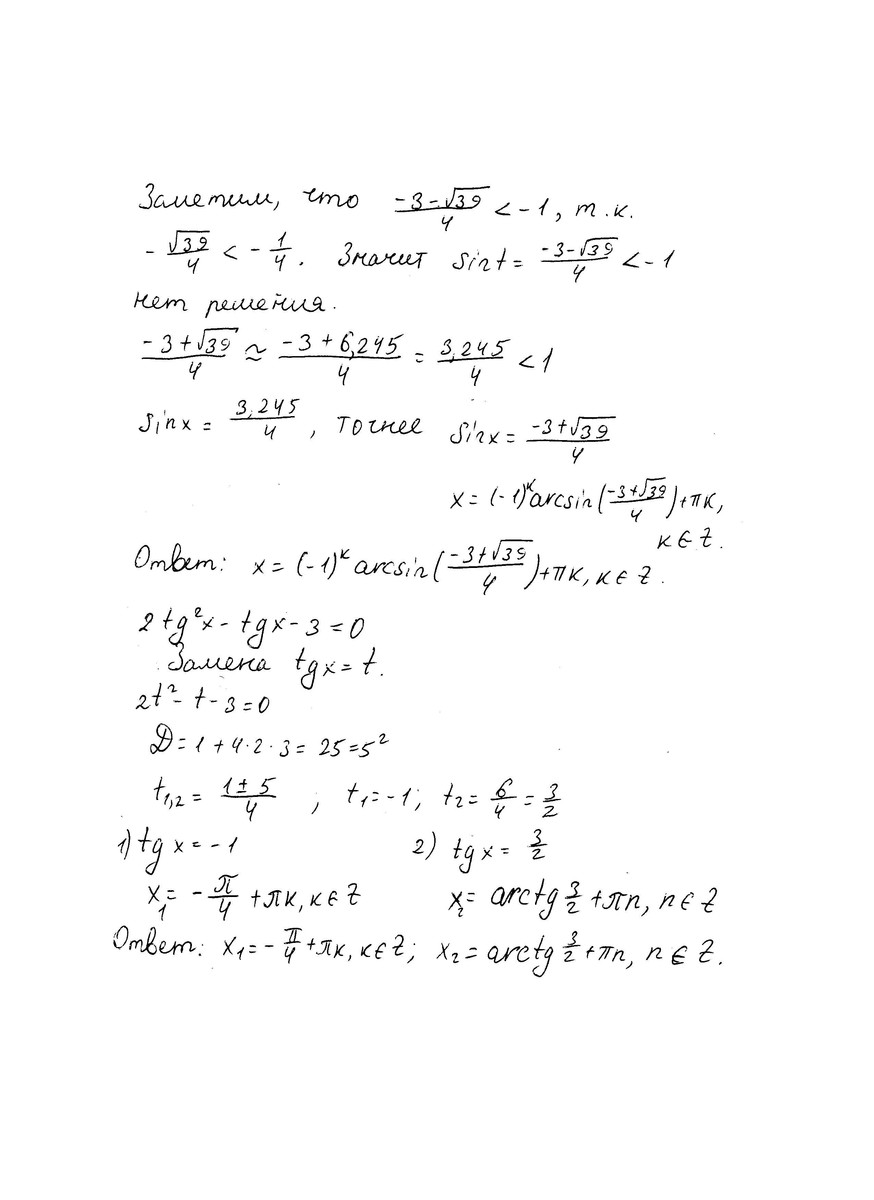 Заметим, что (-3-√39)/4 < -1, т.к.
-√39/4 < -1/4. Значит sint = (-3-√39)/4 < -1
нет решения.
(-3+√39)/4 ≈ (-3+6,245)/4 = 3,245/4 < 1
sinx = 3,245/4, точнее sinx = (-3+√39)/4
x = (-1)^к arcsin((-3+√39)/4)+πк,
к ∈ Z.
Ответ: x = (-1)^к arcsin((-3+√39)/4)+πк, к ∈ Z.
2tg²x - tgx - 3 = 0
Замена tgx = t.
2t² - t - 3 = 0
D = 1 + 4·2·3 = 25 = 5²
t₁,₂ = (1±5)/4, t₁ = -1; t₂ = 6/4 = 3/2
1) tg x = -1 2) tg x = 3/2
x₁ = -π/4 + πк, к ∈ Z x₂ = arctg 3/2 + πn, n ∈ Z
Ответ: x₁ = -π/4 + πк, к ∈ Z; x₂ = arctg 3/2 + πn, n ∈ Z.